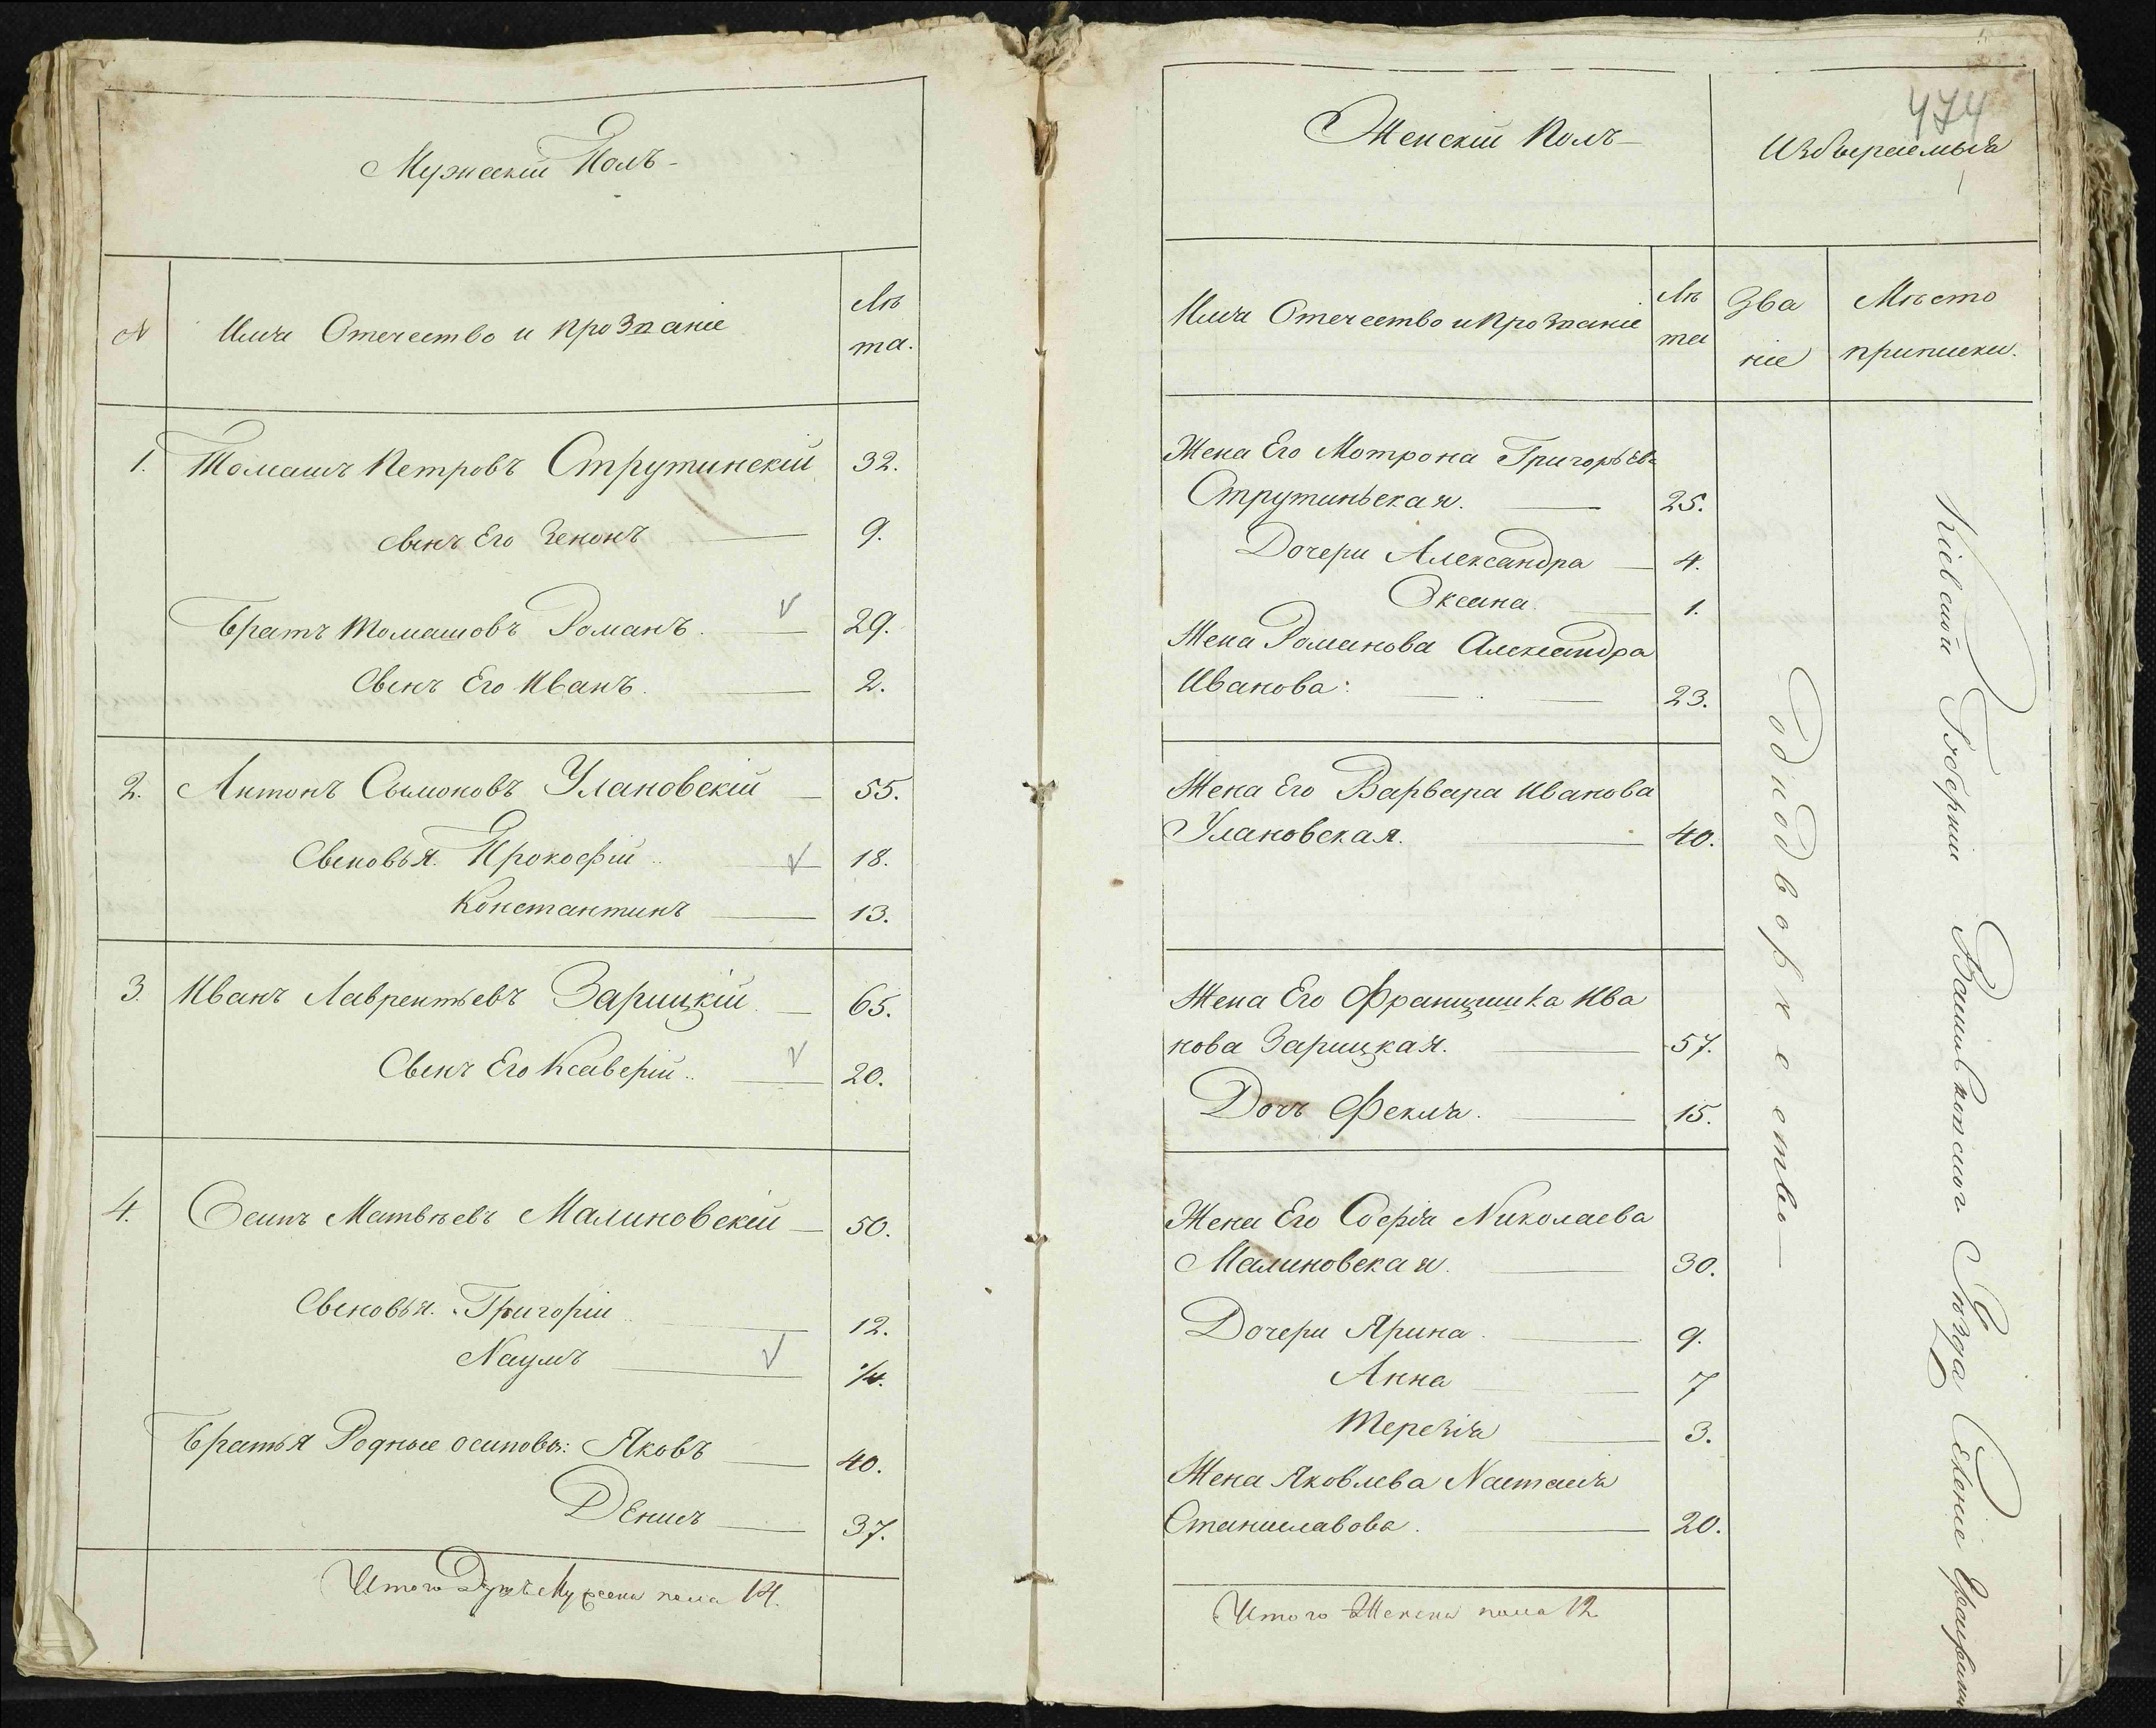 Мужескій Полъ
№
Имя Отечество и прозваніе
Лѣ
та.
1. Томашъ Петровъ Струтинскій 32.
Сынъ Его Зенонъ 9.
Братъ Томашовъ Романъ. 29.
Сынъ Его Иванъ. 2.
2. Антонъ Сымоновъ Улановскій 55.
Сыновья. Прокофій 18.
Константинъ 13.
3. Иванъ Лаврентьевъ Зарицкій 65.
Сынъ Его Ксаверій 20.
4. Осипъ Матвѣевъ Малиновскій 50.
Сыновья. Григорій 12.
Наумъ 1/4.
Братья Родные осиповы: Яковъ 40.
Денисъ 37.
Итого Душъ Мужеска пола 14.
474
Женскій Полъ
Избираемыя
Имя Отечество и прозваніе
Лѣ
та
Зва
ніе
Мѣсто
приписки.
Жена Его Мотрона Григорьев
Струтиньская. 25.
Дочери Александра 4.
Оксана. 1.
Жена Романова Александра
Иванова: 23.
Жена Его Варвара Иванова
Улановская. 40.
Жена Его Францишка Ива
нова Зарицкая. 57.
Дочь Фекла. 15.
Жена Его Софія Николаева
Малиновская. 30.
Дочери Ярина. 9.
Анна 7
Терезія 3.
Жена Яковлева Настасія
Станиславова. 20.
Итого Женска пола 12
Однодворчество
Кіевской Губерніи Васильковскаго Уѣзда Селеніе